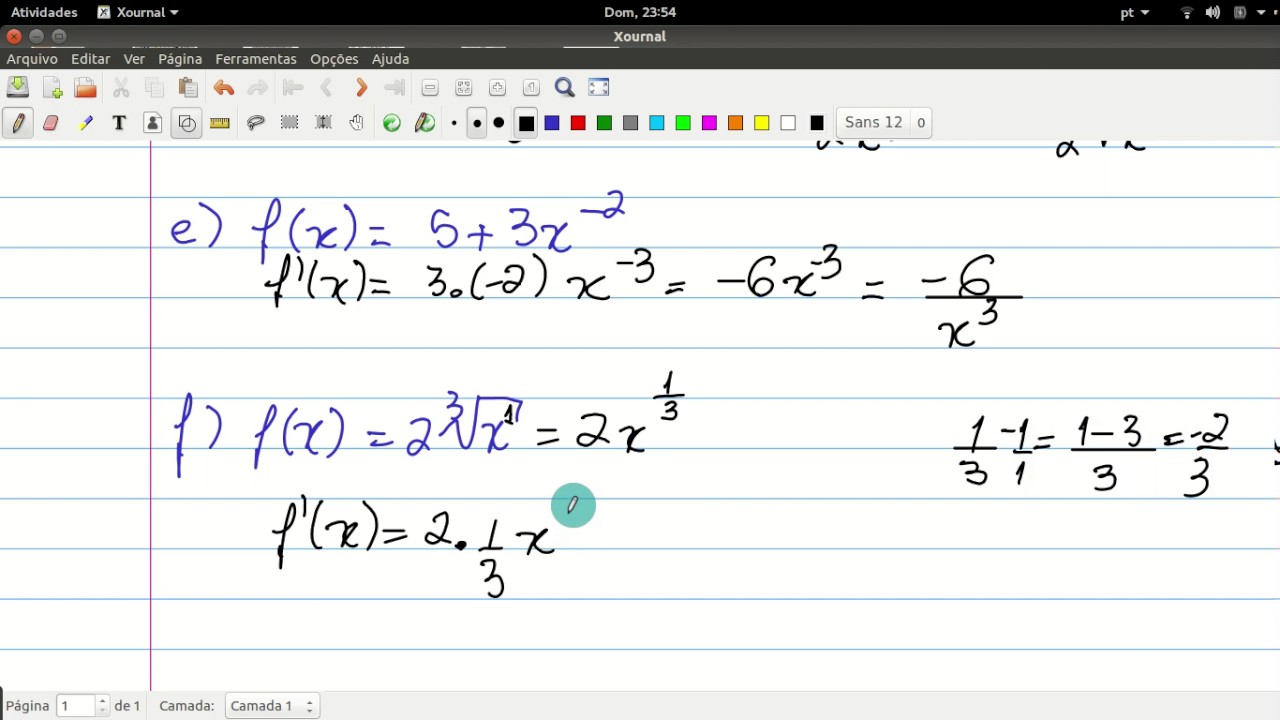 Atividades Xournal Dom, 23:54 pt
Xournal
Arquivo Editar Ver Página Ferramentas Opções Ajuda
Sans 12 0
e) f(x) = 5 + 3x^-2
f'(x) = 3.(-2) x^-3 = -6x^-3 = -6/x^3
f) f(x) = 2∛x^1 = 2x^1/3
1/3 - 1/1 = 1-3/3 = -2/3
f'(x) = 2 . 1/3 x
Página 1 de 1 Camada: Camada 1